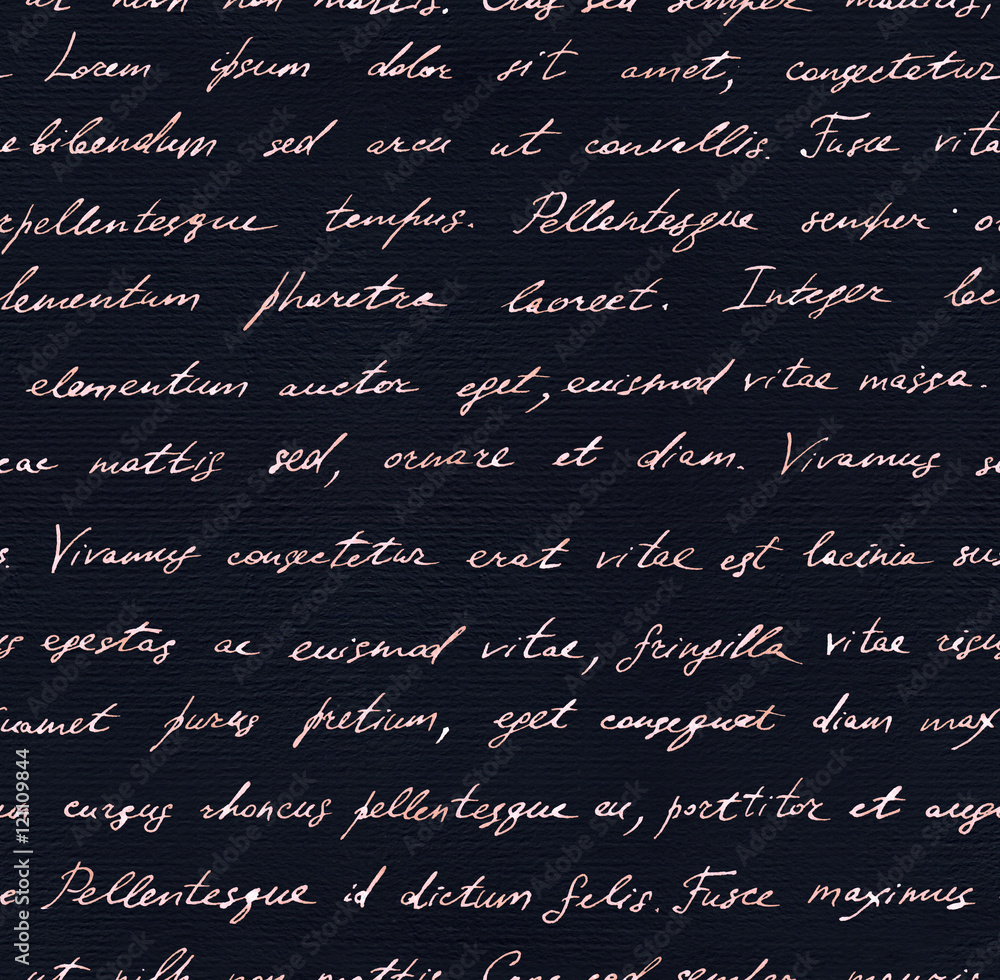 non mattis. Cras sed semper mauris,
Lorem ipsum dolor sit amet, consectetur
bibendum sed arcu ut convallis. Fusce vita
rpellentesque tempus. Pellentesque semper
lementum pharetra laoreet. Integer lec
elementum auctor eget, euismod vitae massa.
cac mattis sed, ornare et diam. Vivamus
s. Vivamus consectetur erat vitae est lacinia sus
egestas ac euismod vitae, fringilla vitae risus
amet purus pretium, eget consequat diam max
cursus rhoncus pellentesque eu, porttitor et augu
e Pellentesque id dictum felis. Fusce maximus
ut nibh non mattis. Cras sed semper mauris
Adobe Stock | #121109844